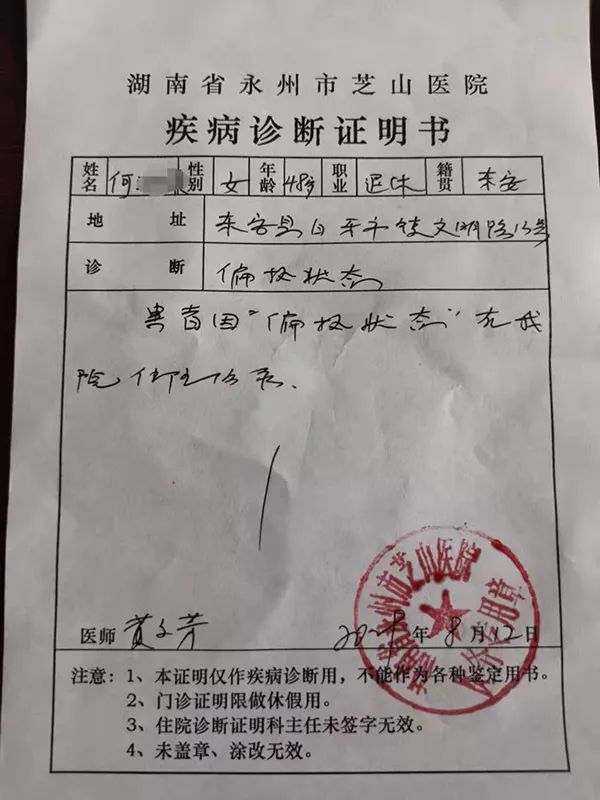 湖南省永州市芝山医院
疾病诊断证明书
姓名 何 性别 女 年龄 48岁 职业 退休 籍贯 东安
地址 东安县白牙市镇文明路
诊断 偏执状态
患者因“偏执状态”在我
院住院治疗.
医师 黄 芳 年 8月12日
湖南省永州市芝山医院
专用章
注意：1、本证明仅作疾病诊断用，不能作为各种鉴定用书。
2、门诊证明限做休假用。
3、住院诊断证明科主任未签字无效。
4、未盖章、涂改无效。